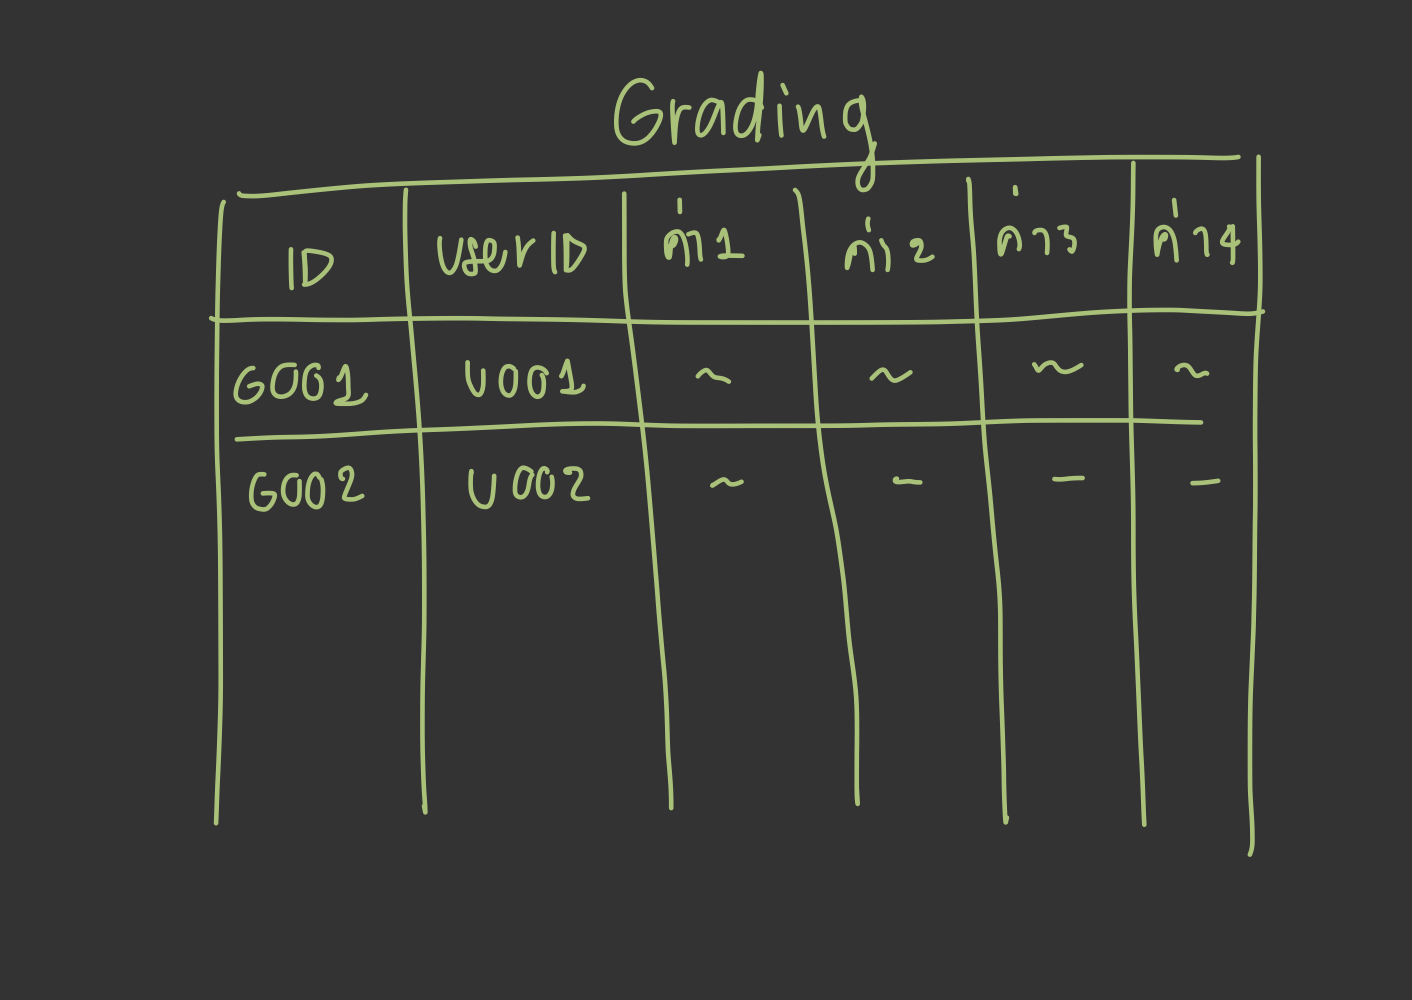 Grading
ID userID ค่า1 ค่า2 ค่า3 ค่า4
G001 U001 ~ ~ ~ ~
G002 U002 ~ - - -